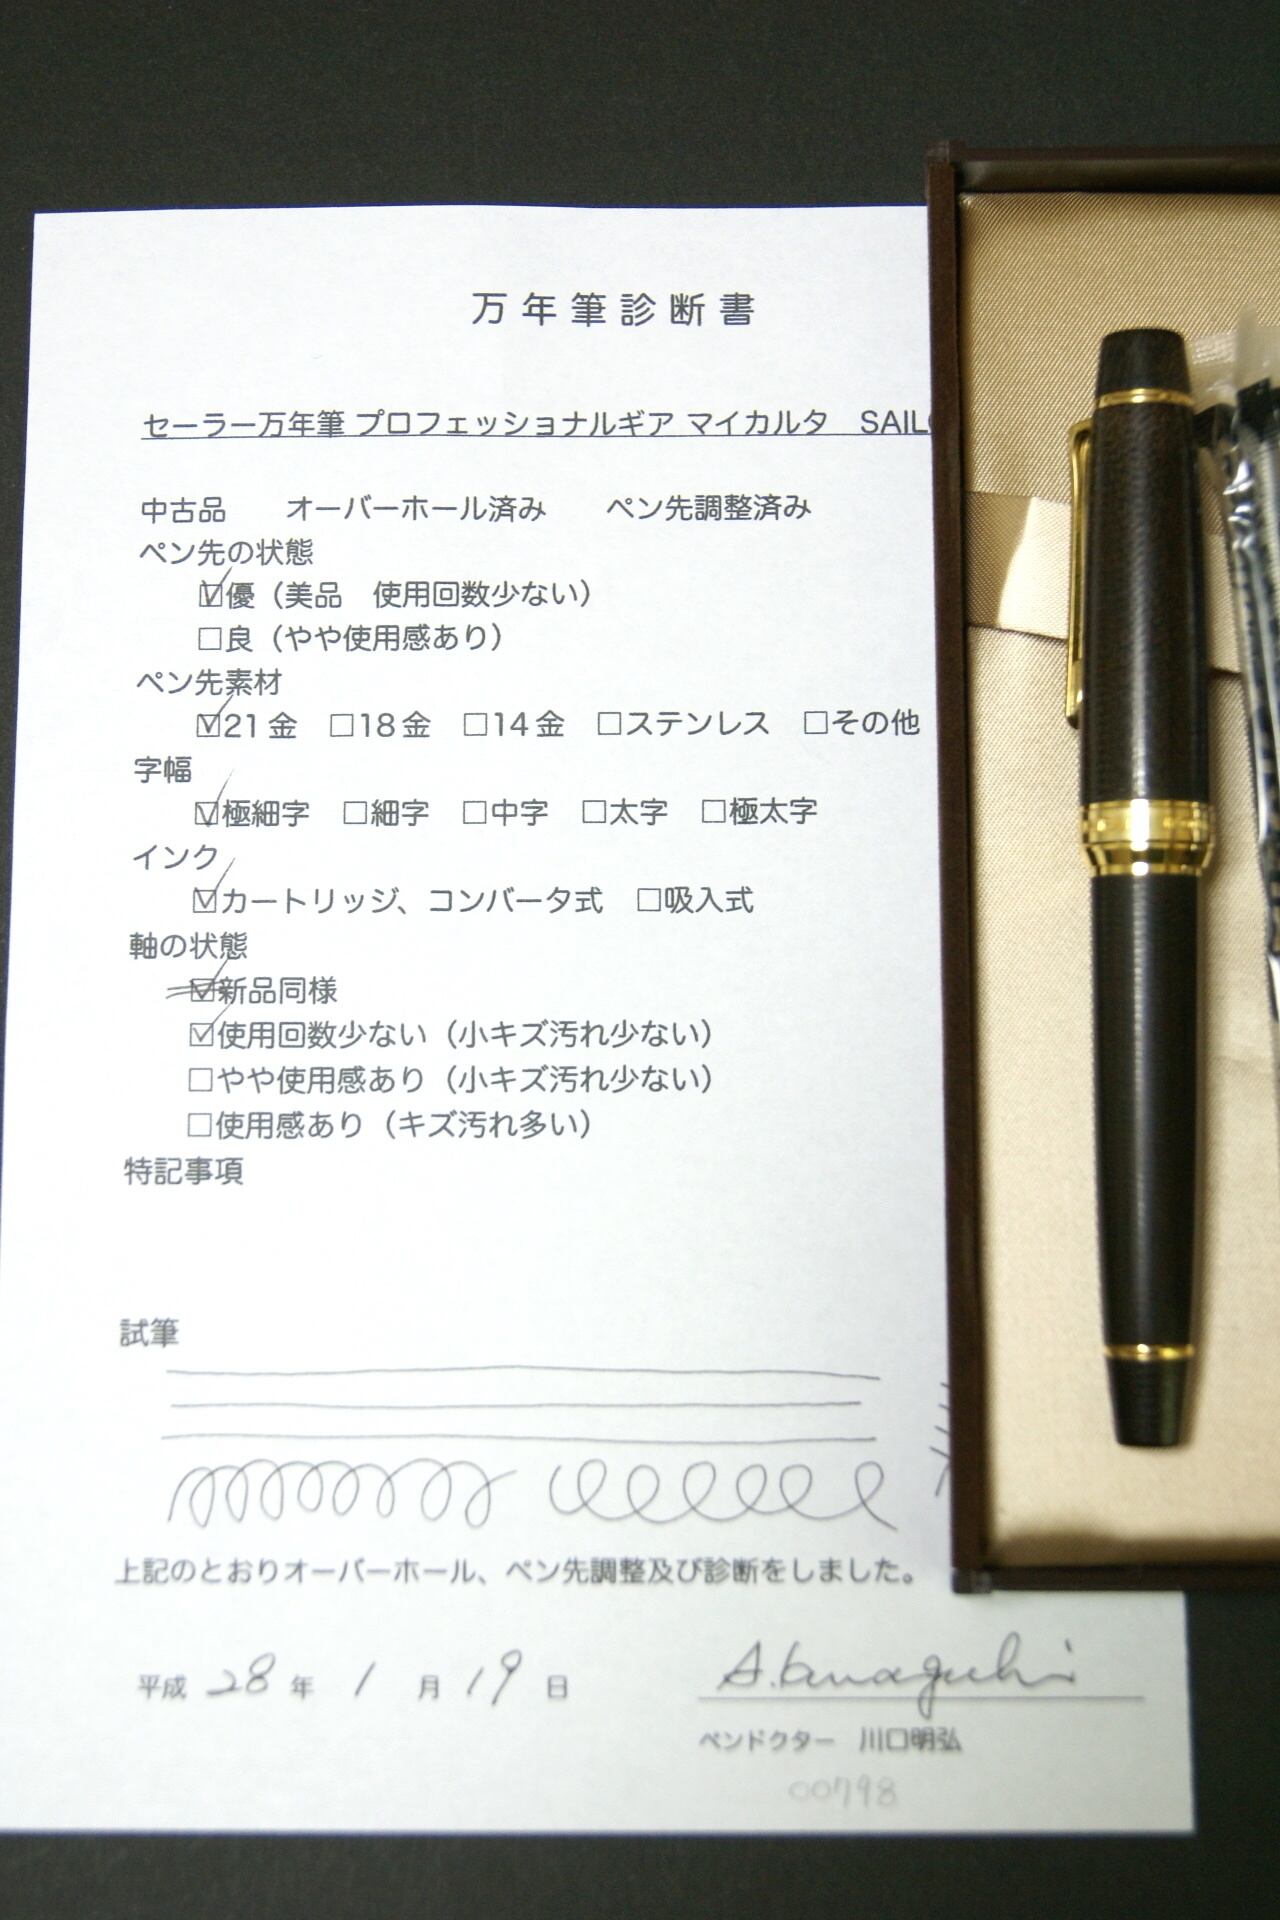 万年筆診断書
セーラー万年筆 プロフェッショナルギア マイカルタ SAIL
中古品 オーバーホール済み ペン先調整済み
ペン先の状態
☑優（美品 使用回数少ない）
□良（やや使用感あり）
ペン先素材
☑21金 □18金 □14金 □ステンレス □その他
字幅
☑極細字 □細字 □中字 □太字 □極太字
インク
☑カートリッジ、コンバータ式 □吸入式
軸の状態
☑新品同様
☑使用回数少ない（小キズ汚れ少ない）
□やや使用感あり（小キズ汚れ少ない）
□使用感あり（キズ汚れ多い）
特記事項
試筆
上記のとおりオーバーホール、ペン先調整及び診断をしました。
平成 28 年 1 月 19 日
ペンドクター 川口明弘
00798